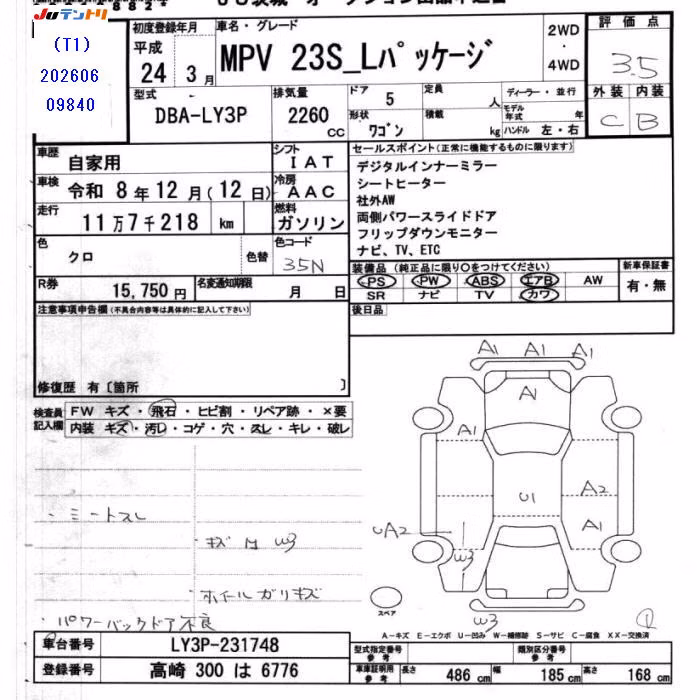 8824
JUテントリ
(T1)
202606
09840
初度登録年月
平成
24 年 3 月
車名・グレード
MPV 23S_Lパッケージ
2WD
・
4WD
評価点
3.5
外装 内装
C B
型式
DBA-LY3P
排気量
2260
CC
ドア
5
定員
人
形状
ワゴン
積載
kg
ディーラー・並行
モデル年式 年
ハンドル 左・右
車歴
自家用
シフト
IAT
車検
令和 8年 12月(12日)
冷房
AAC
走行
11万7千218 km
燃料
ガソリン
色
クロ
色替
色コード
35N
セールスポイント(正常に機能するものに限ります)
デジタルインナーミラー
シートヒーター
社外AW
両側パワースライドドア
フリップダウンモニター
ナビ、TV、ETC
R券
15,750 円
名変通知期限
月 日
装備品(純正品に限り○をつけてください)
PS PW ABS エアB AW
SR ナビ TV カワ
新車保証書
有・無
後日品
注意事項申告欄(不具合内容等は具体的に記入して下さい)
修復歴 有〔箇所 〕
検査員記入欄
FW キズ・飛石・ヒビ割・リペア跡・×要
内装 キズ・汚レ・コゲ・穴・スレ・キレ・破レ
・シートスレ
・キズ 凹 W3
・ホイールガリキズ
・パワーバックドア不良
A1 A1 A1
A1
A1
U1
A2
UA2
A1
W3
W3
スペア
A-キズ E-エクボ U-凹み W-補修跡 S-サビ C-腐食 XX-交換済
車台番号
LY3P-231748
登録番号
高崎 300 は 6776
型式指定番号
参考
類別区分番号
参考
車庫証明用
参考
長さ 486 cm 幅 185 cm 高さ 168 cm